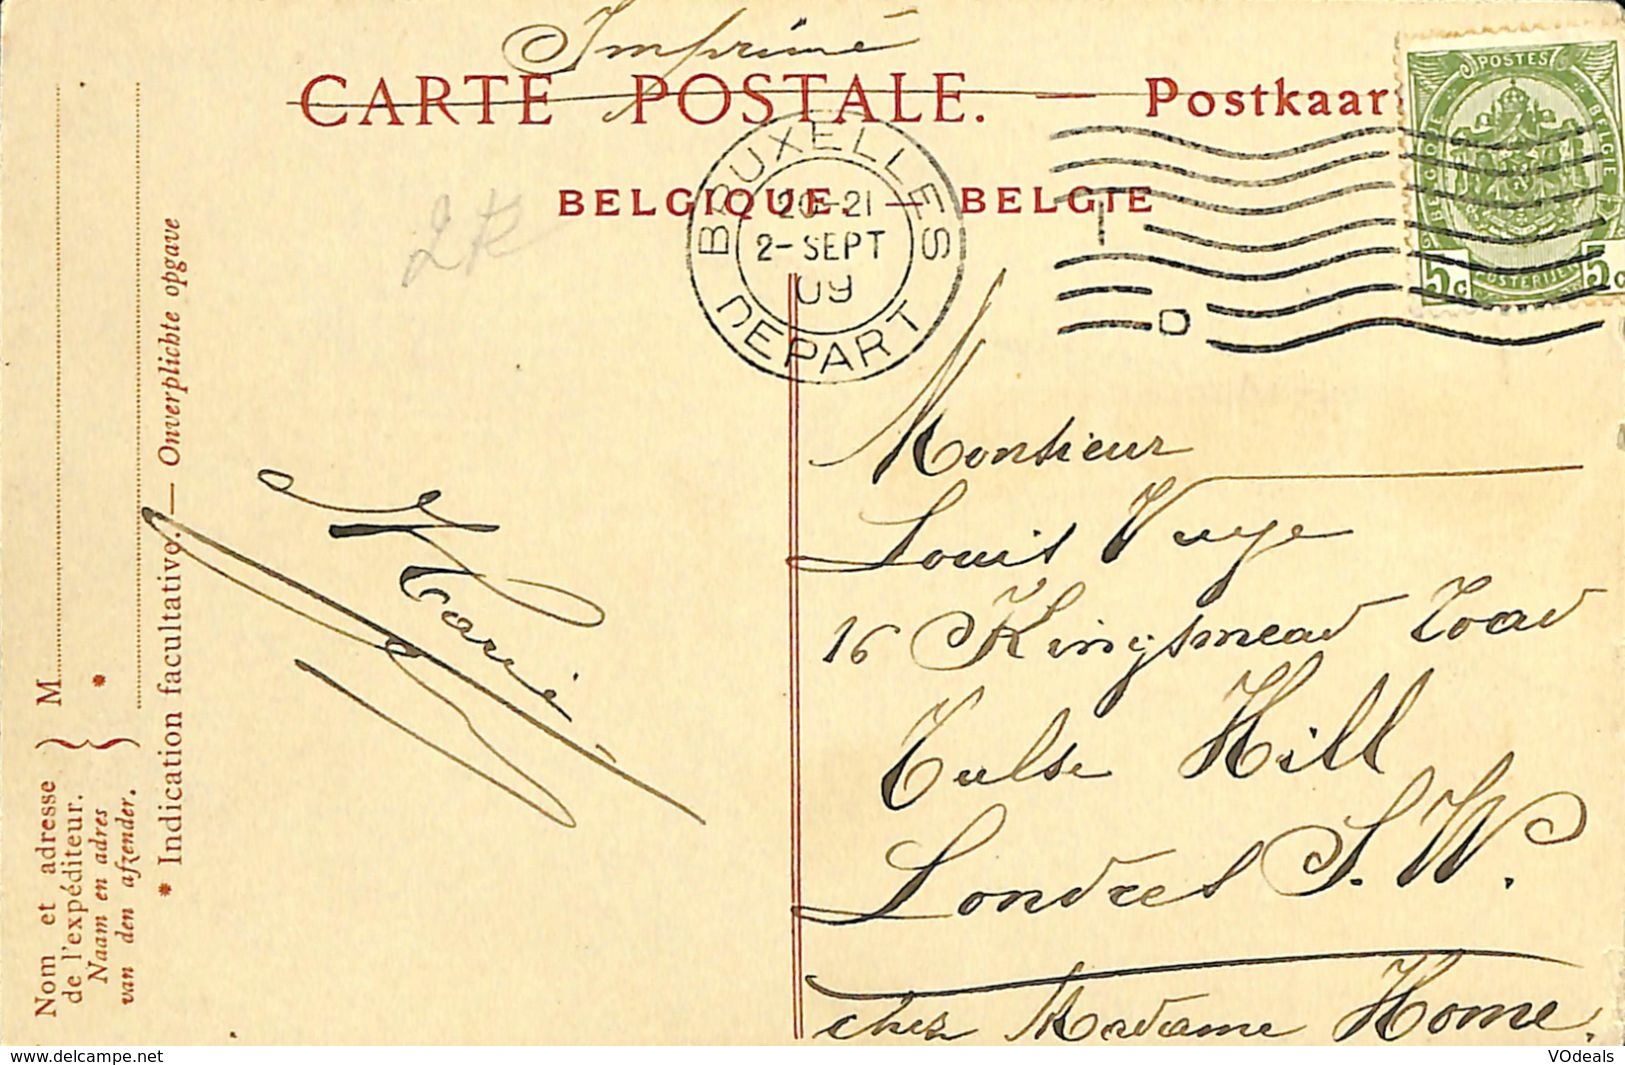 Imprimé
CARTE POSTALE. — Postkaar
BELGIQUE. — BELGIE
BRUXELLES
20-21
2-SEPT
09
DEPART
T
POSTES
BELGIQUE
BELGIE
POSTERIJEN
5c 5c
Monsieur
Louis Vuye
16 Kingsmead road
Tulse Hill
Londres S. W.
chez Madame Home.
Marie
Nom et adresse
de l'expéditeur.
Naam en adres
van den afzender.
M
*
* Indication facultative. — Onverplichte opgave
VOdeals
www.delcampe.net